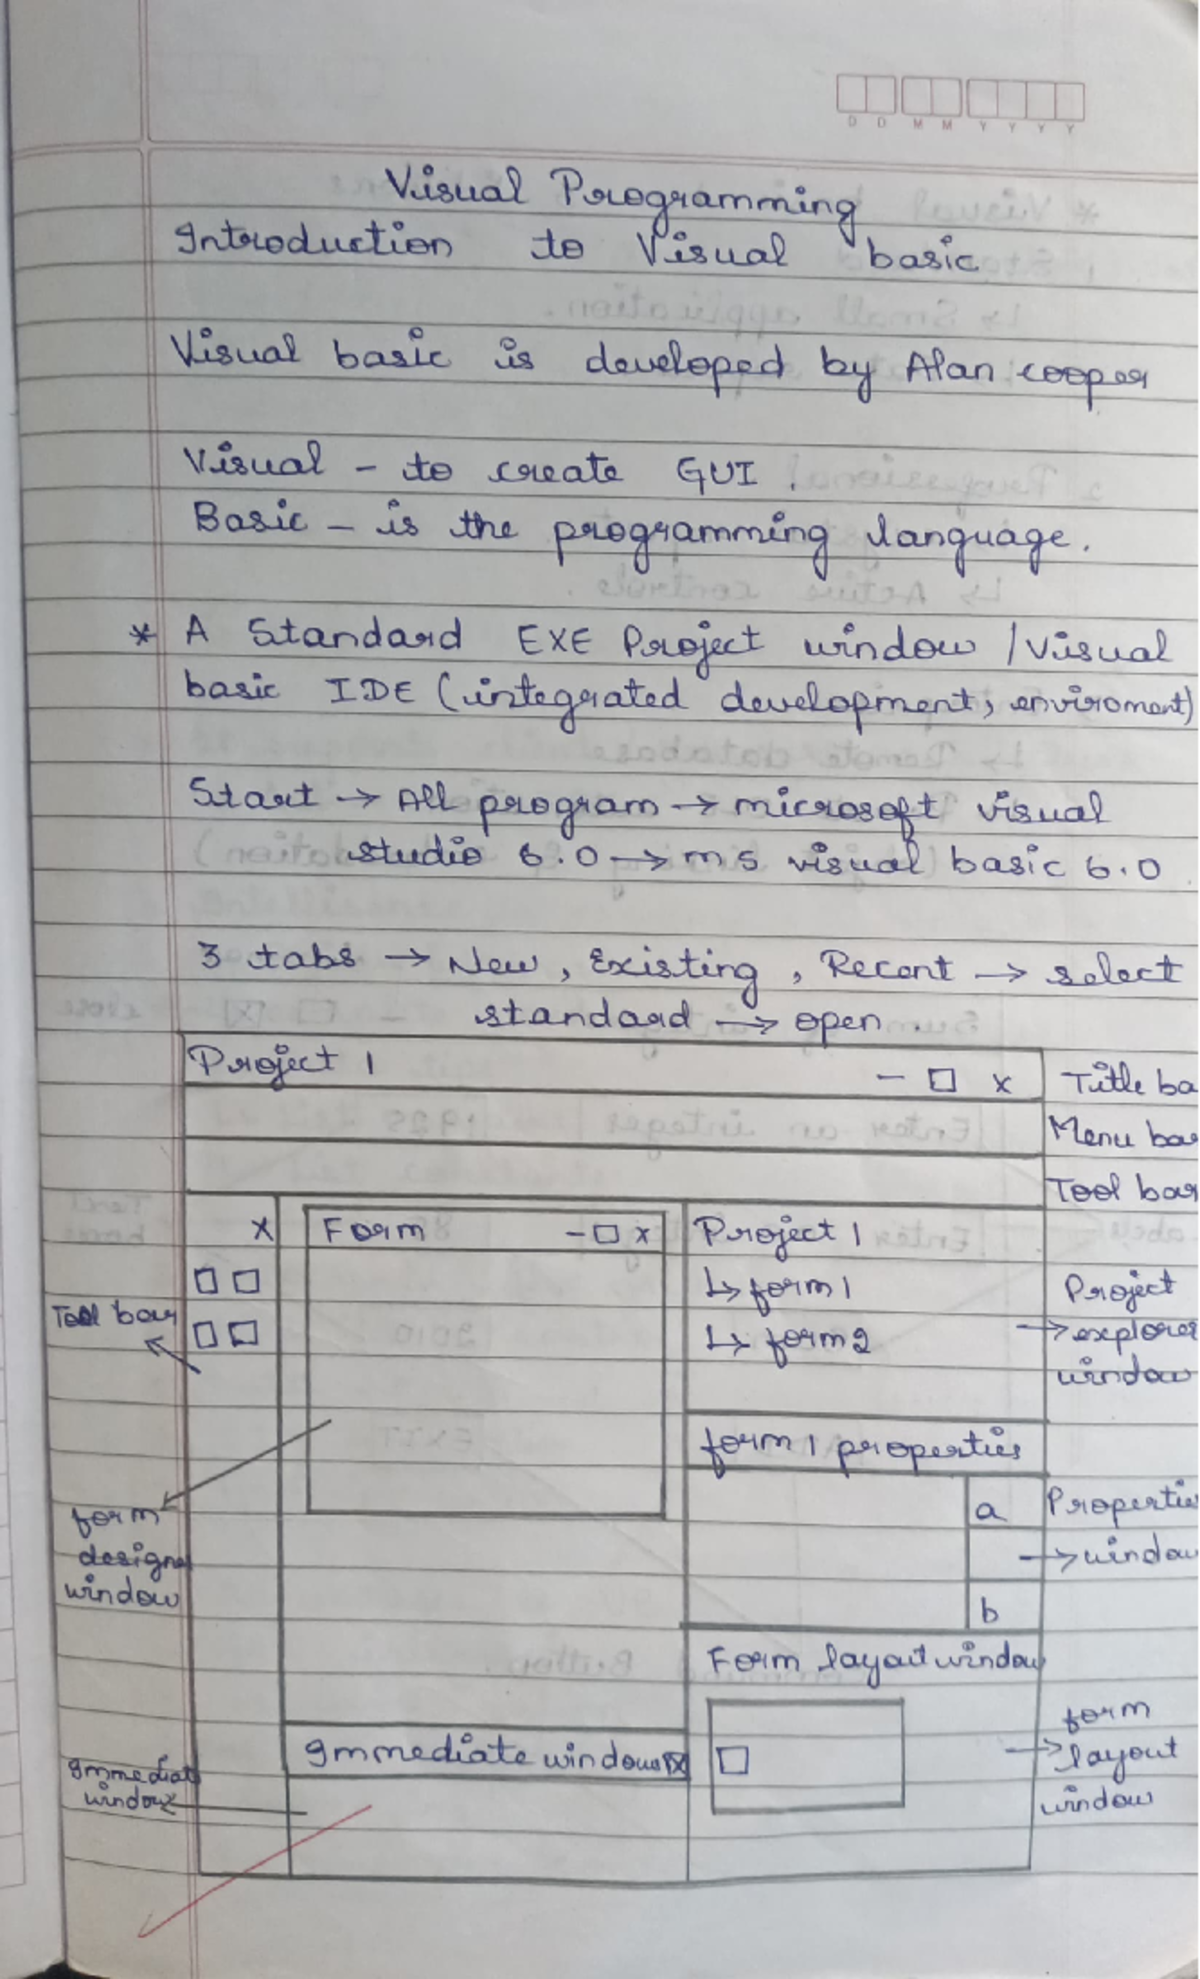 D D M M Y Y Y Y
Visual Programming
Introduction to Visual basic
Visual basic is developed by Alan cooper
Visual - to create GUI.
Basic - is the programming language.
* A Standard EXE Project window / Visual
basic IDE (integrated development, enviroment)
Start → All program → microsoft visual
studio 6.0 → ms visual basic 6.0
3 tabs → New, Existing, Recent → select
standard → open.
Project 1 - □ x Title ba
Menu bar
Tool bar
x Form - □ x Project 1
↳ form 1 Project
Tool bar ↳ form 2 → explorer
window
form 1 properties
form a Propertie
design → window
window b
Form layout window
form
Immediate window x → layout
Immediat window
window